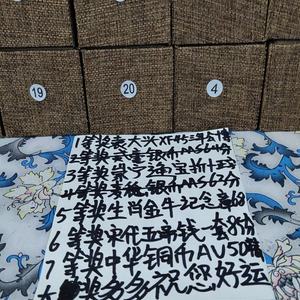 19
20
4
1等奖袁大头XF45三年合情
2等奖云童银币MS64分
3等奖崇宁通宝折十五珍
4等奖银币MS62分
5等奖生肖金牛纪念章68
6等奖宋代五帝钱一套8分
7等奖中华铜币AU50精
奖多多祝您好运